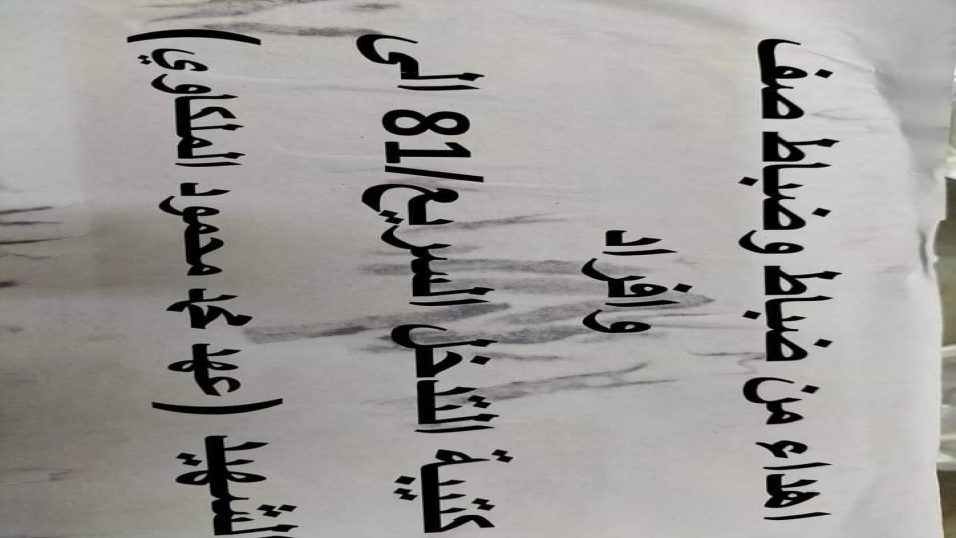 اهداء من ضباط وضباط صف
و افراد
كتيبة التدخل السريع/81 الى
الشهيد (عهد محمد محمود الملكاوي)